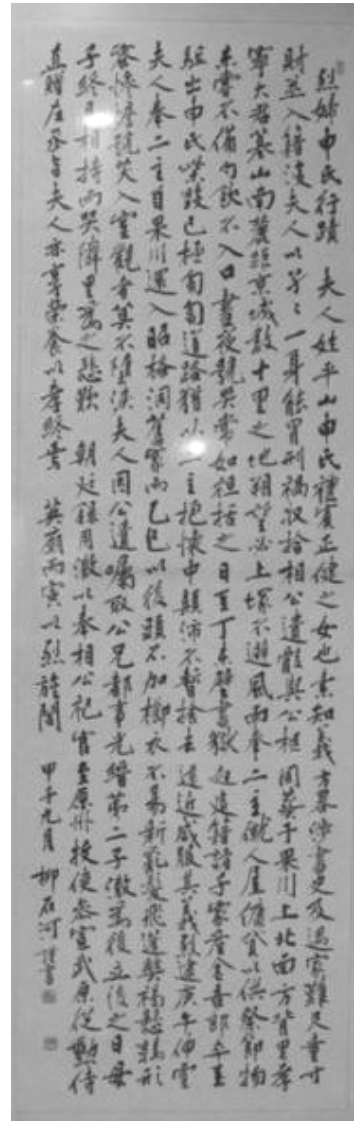 烈婦申氏行蹟 夫人姓平山申氏禮賓正健之女也素知義方畧涉書史及遇家難尺童寸
財並入籍沒夫人以煢〻一身能冒刑禍収拾相公遺骸與公柩同葬于果川上北面方背里孝
寧大君墓山南麓距京城數十里之地朔望必上塚不避風雨奉二主僦人屋備貧以供祭節物
未嘗不備勺飲不入口晝夜號哭常如袒括之日至丁未壁書獄起追籍諸子家產金吾郎卒至
駈出申氏已極匍匐道路猶以二主抱懷中顛沛不暫捨去遠近感服其義烈逮庚午伸雪
夫人奉二主自果川還入昭格洞舊第而乙巳以後頭不加櫛衣不易新亂髮飛蓬弊褐懸鶉形
容慘澹號哭入室觀者莫不墮淚夫人因公遺囑取公兄都事光縉第二子澈爲後立後之日母
子終日相持而哭隣里爲之悲歎 朝廷錄用澈以奉相公祀官至原州授使忝宣武原從勳侍
直贈左丞旨夫人亦享榮養以孝終焉 英廟丙寅以烈旌閭 甲午九月 柳石河謹書